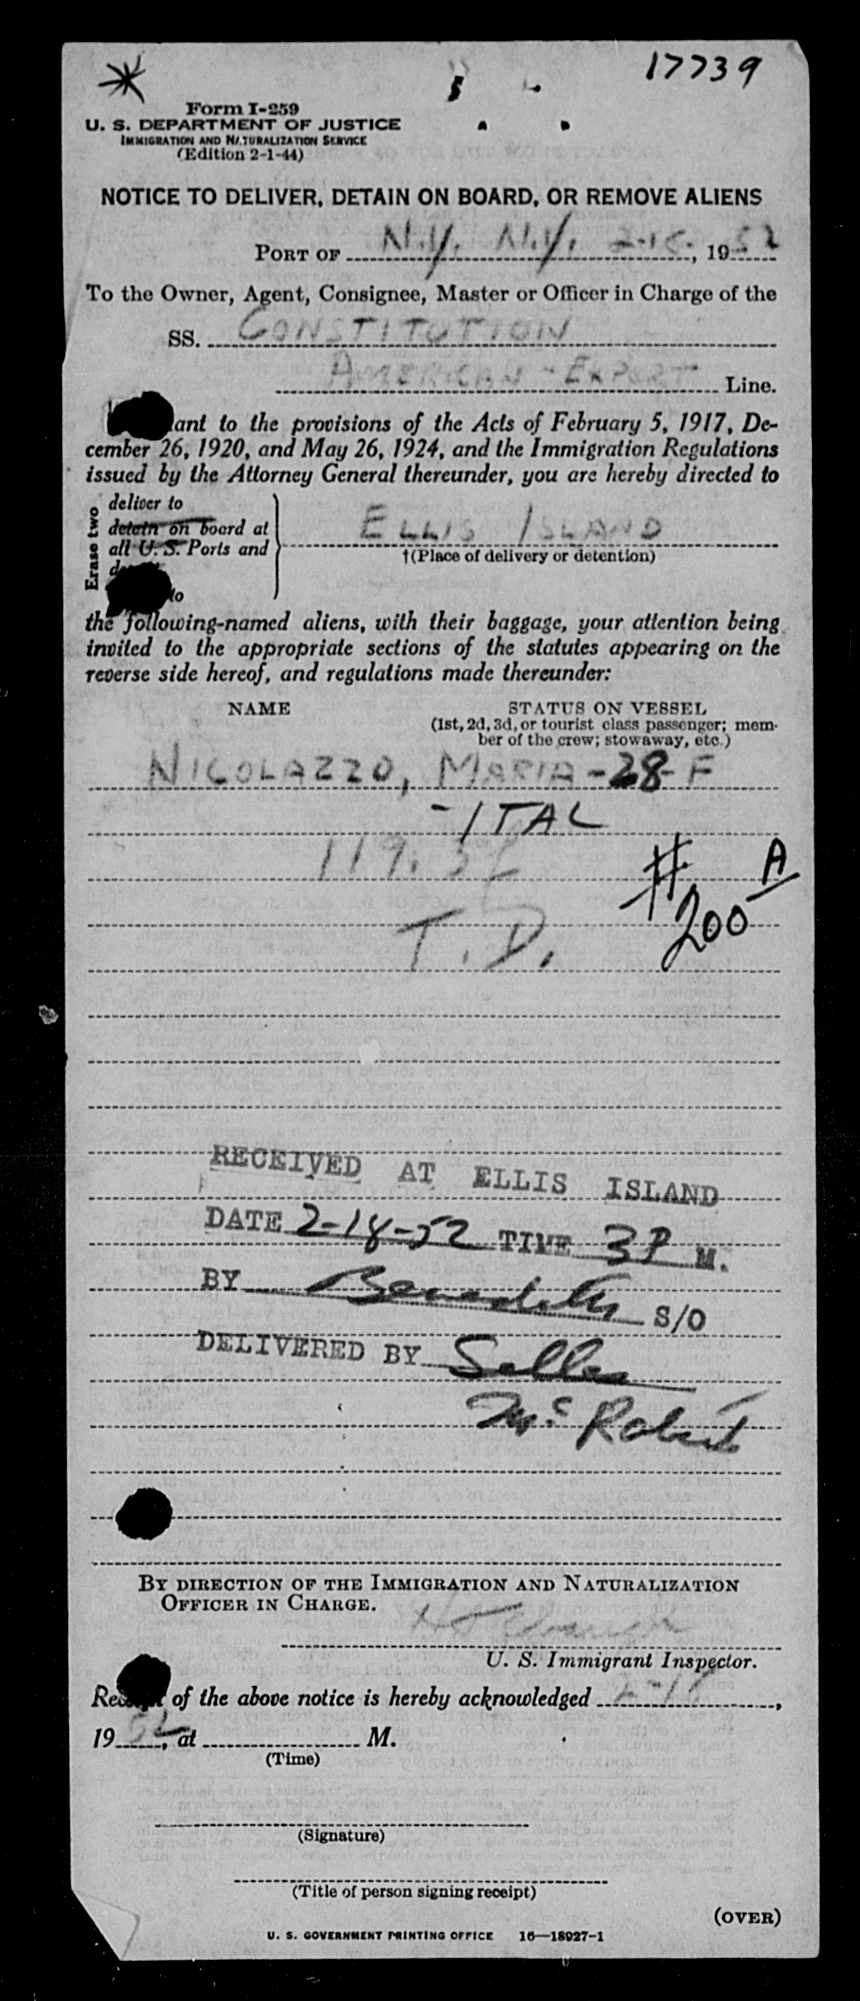 17739
Form I-259
U. S. DEPARTMENT OF JUSTICE
IMMIGRATION AND NATURALIZATION SERVICE
(Edition 2-1-44)
NOTICE TO DELIVER, DETAIN ON BOARD, OR REMOVE ALIENS
PORT OF N.Y. N.Y. , 1952
To the Owner, Agent, Consignee, Master or Officer in Charge of the
SS. CONSTITUTION
AMERICAN-EXPORT Line.
ant to the provisions of the Acts of February 5, 1917, De-
cember 26, 1920, and May 26, 1924, and the Immigration Regulations
issued by the Attorney General thereunder, you are hereby directed to
Erase two
deliver to
detain on board at
all U. S. Ports and
to
ELLIS ISLAND
†(Place of delivery or detention)
the following-named aliens, with their baggage, your attention being
invited to the appropriate sections of the statutes appearing on the
reverse side hereof, and regulations made thereunder:
NAME STATUS ON VESSEL
(1st, 2d, 3d, or tourist class passenger; mem-
ber of the crew; stowaway, etc.)
NICOLAZZO, MARIA-28-F
-ITAL
T.D.
# 200 A
RECEIVED AT ELLIS ISLAND
DATE 2-18-52 TIME 3P M.
BY S/O
DELIVERED BY
BY DIRECTION OF THE IMMIGRATION AND NATURALIZATION
OFFICER IN CHARGE.
U. S. Immigrant Inspector.
of the above notice is hereby acknowledged ,
1952, at M.
(Time)
(Signature)
(Title of person signing receipt)
(OVER)
U. S. GOVERNMENT PRINTING OFFICE 16—18927-1